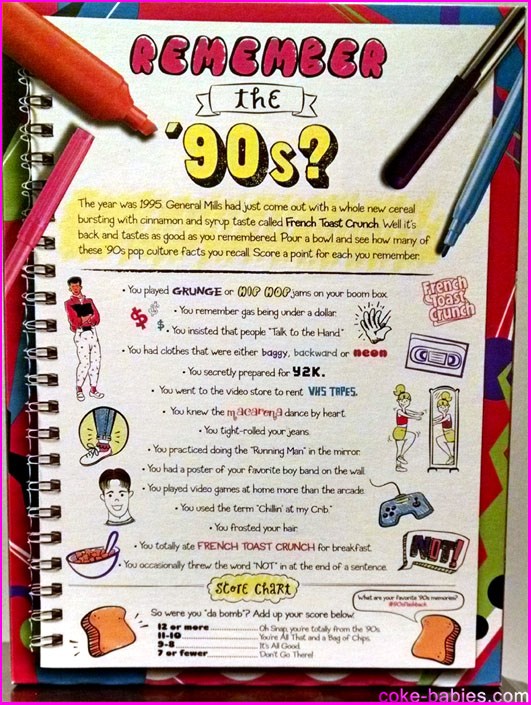 REMEMBER
the
'90s?
The year was 1995. General Mills had just come out with a whole new cereal
bursting with cinnamon and syrup taste called French Toast Crunch. Well it's
back and tastes as good as you remembered. Pour a bowl and see how many of
these '90s pop culture facts you recall. Score a point for each you remember.
• You played GRUNGE or HIP HOP jams on your boom box.
French
Toast
Crunch
• You remember gas being under a dollar.
• You insisted that people "Talk to the Hand"
• You had clothes that were either baggy, backward or neon
• You secretly prepared for Y2K.
• You went to the video store to rent VHS TAPES.
• You knew the macarena dance by heart.
• You tight-rolled your jeans.
• You practiced doing the "Running Man" in the mirror.
• You had a poster of your favorite boy band on the wall.
• You played video games at home more than the arcade.
• You used the term "Chillin' at my Crib."
• You frosted your hair.
NOT!
• You totally ate FRENCH TOAST CRUNCH for breakfast.
• You occasionally threw the word "NOT" in at the end of a sentence.
SCORE CHART
What are your favorite '90s memories?
#90sflashback
So were you "da bomb"? Add up your score below!
12 or more Oh Snap, you're totally from the '90s.
11-10 You're All That and a Bag of Chips.
9-8 It's All Good.
7 or fewer Don't Go There!
coke-babies.com